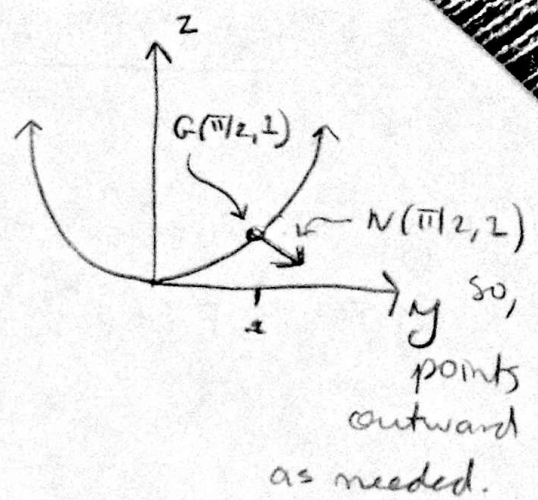 z
G(π/2, 1)
N(π/2, 1)
y
1
so,
points
outward
as needed.